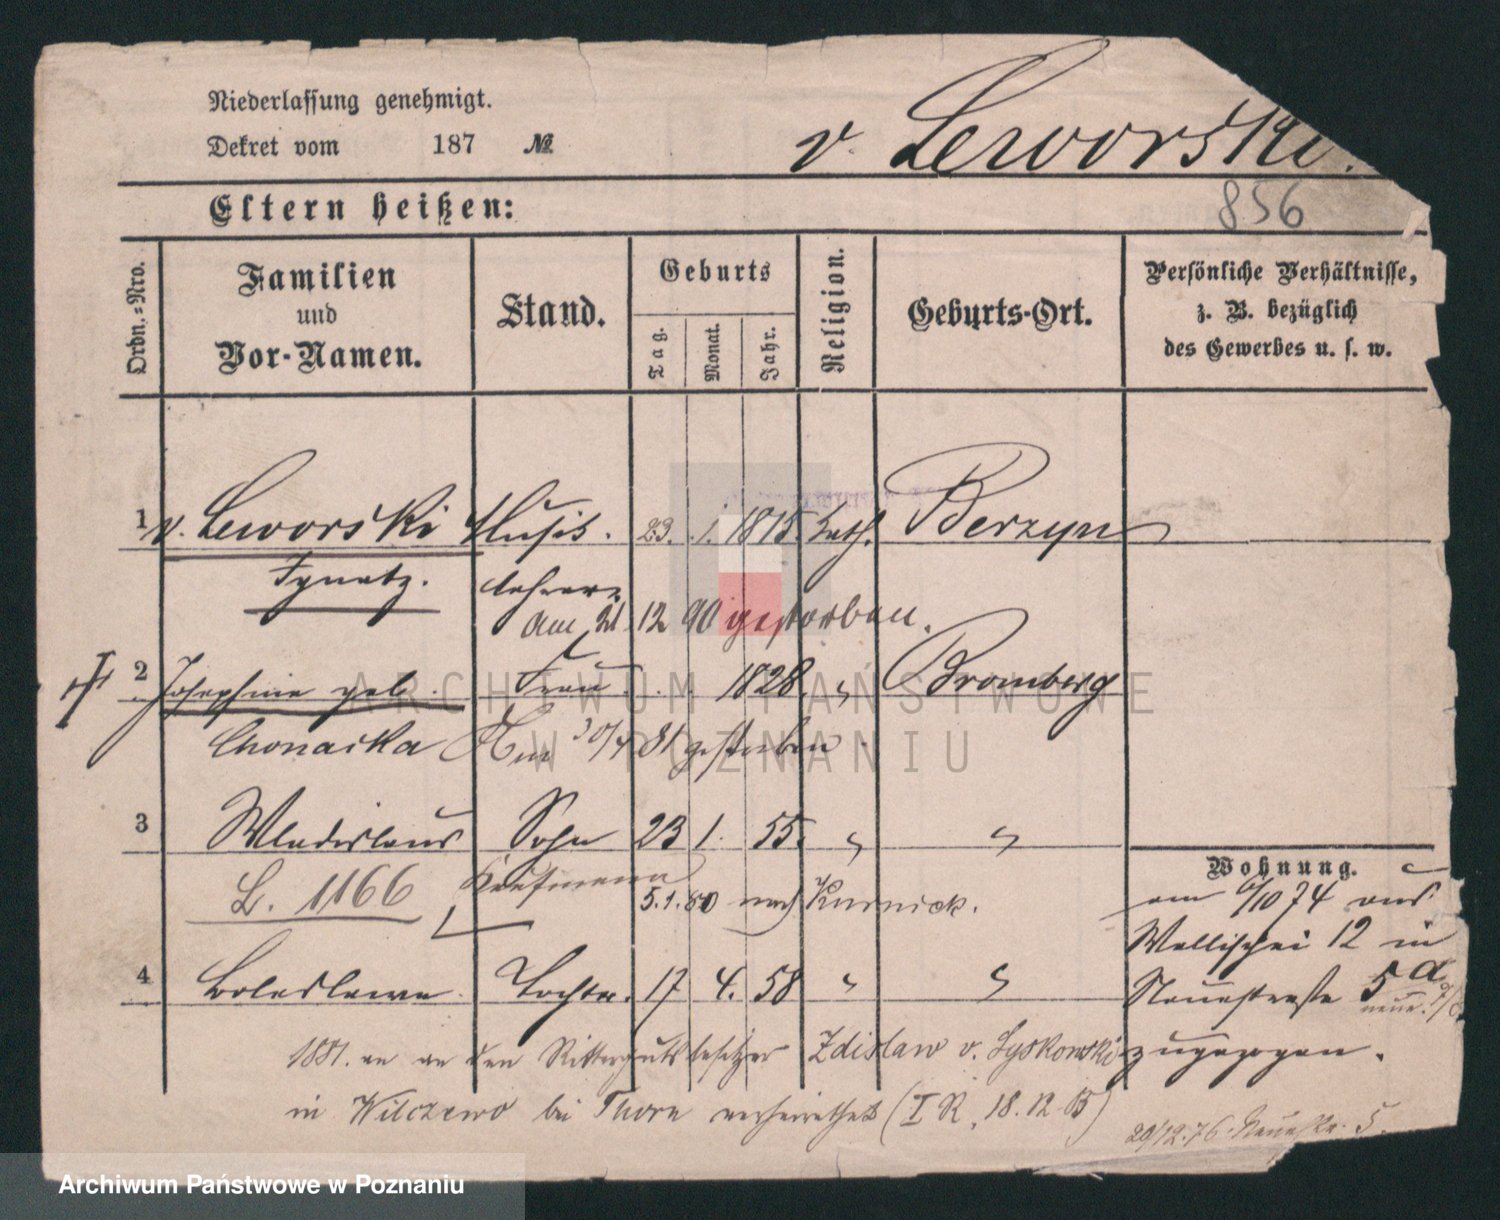 Niederlassung genehmigt.
Dekret vom 187 №
v. Leworski.
856
Eltern heißen:
Ordn.-Nro.
Familien
und
Vor-Namen.
Stand.
Geburts
Tag.
Monat.
Jahr.
Religion.
Geburts-Ort.
Persönliche Verhältnisse,
z. B. bezüglich
des Gewerbes u. s. w.
1 v. Leworski Musik. 23. 1. 1815. kath. Berzyn
Ignatz. lehrer
am 21. 12 90 gestorben.
2 Josephine geb. Frau 1828. " Bromberg
Chonacka Am 30/4 81 gestorben.
3 Wladislaus Sohn 23 1. 55. " "
L. 1166 Kaufmann
5.1.80 nach Kurnick.
4 Boleslawa Tochter. 17 4. 58 " "
Wohnung.
am 6/10 74 aus
Wallischei 12 in
Neuestrasse 5 a.
zugezogen.
1881. an den Rittergutsbesitzer Zdislaw v. Lyskowski
in Wilczewo bei Thorn verheirathet (I R. 18. 12 85)
29/12.76. Neuestr. 5.
ARCHIWUM PAŃSTWOWE
W POZNANIU
Archiwum Państwowe w Poznaniu